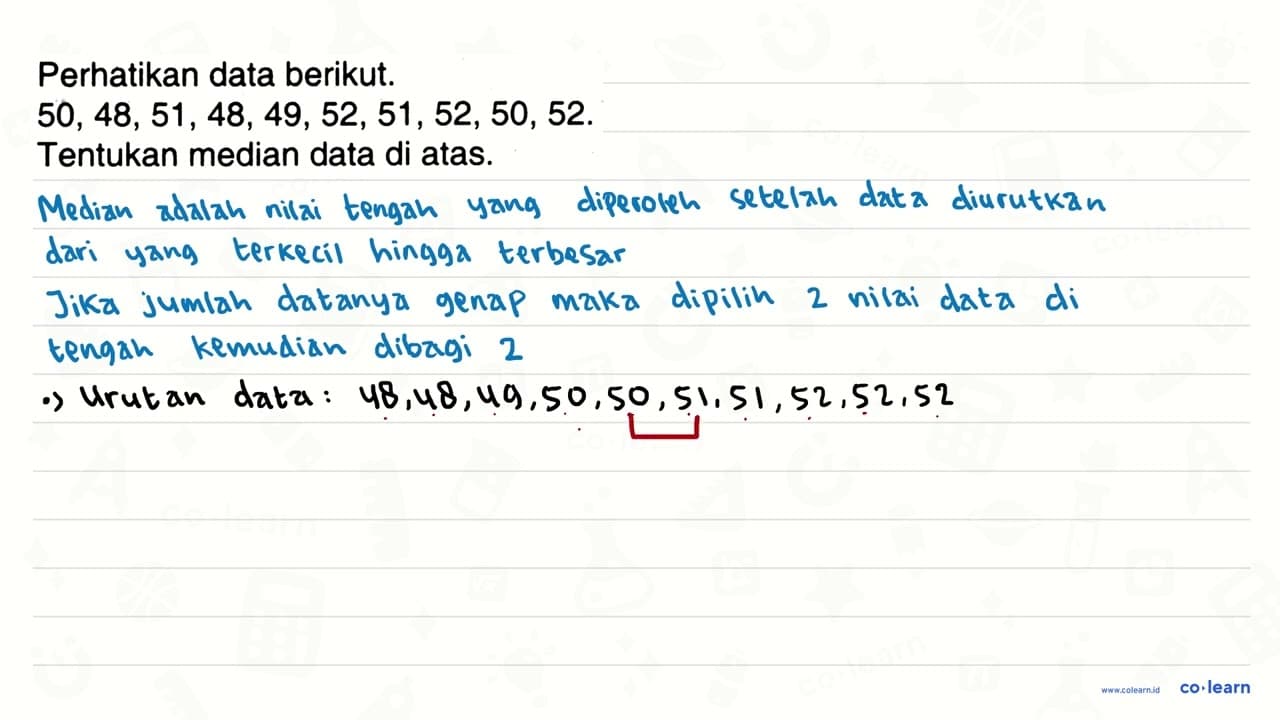 Perhatikan data berikut.
50, 48, 51, 48, 49, 52, 51, 52, 50, 52.
Tentukan median data di atas.
Median adalah nilai tengah yang diperoleh setelah data diurutkan
dari yang terkecil hingga terbesar
Jika jumlah datanya genap maka dipilih 2 nilai data di
tengah kemudian dibagi 2
•> Urutan data : 48, 48, 49, 50, 50, 51, 51, 52, 52, 52
www.colearn.id co·learn